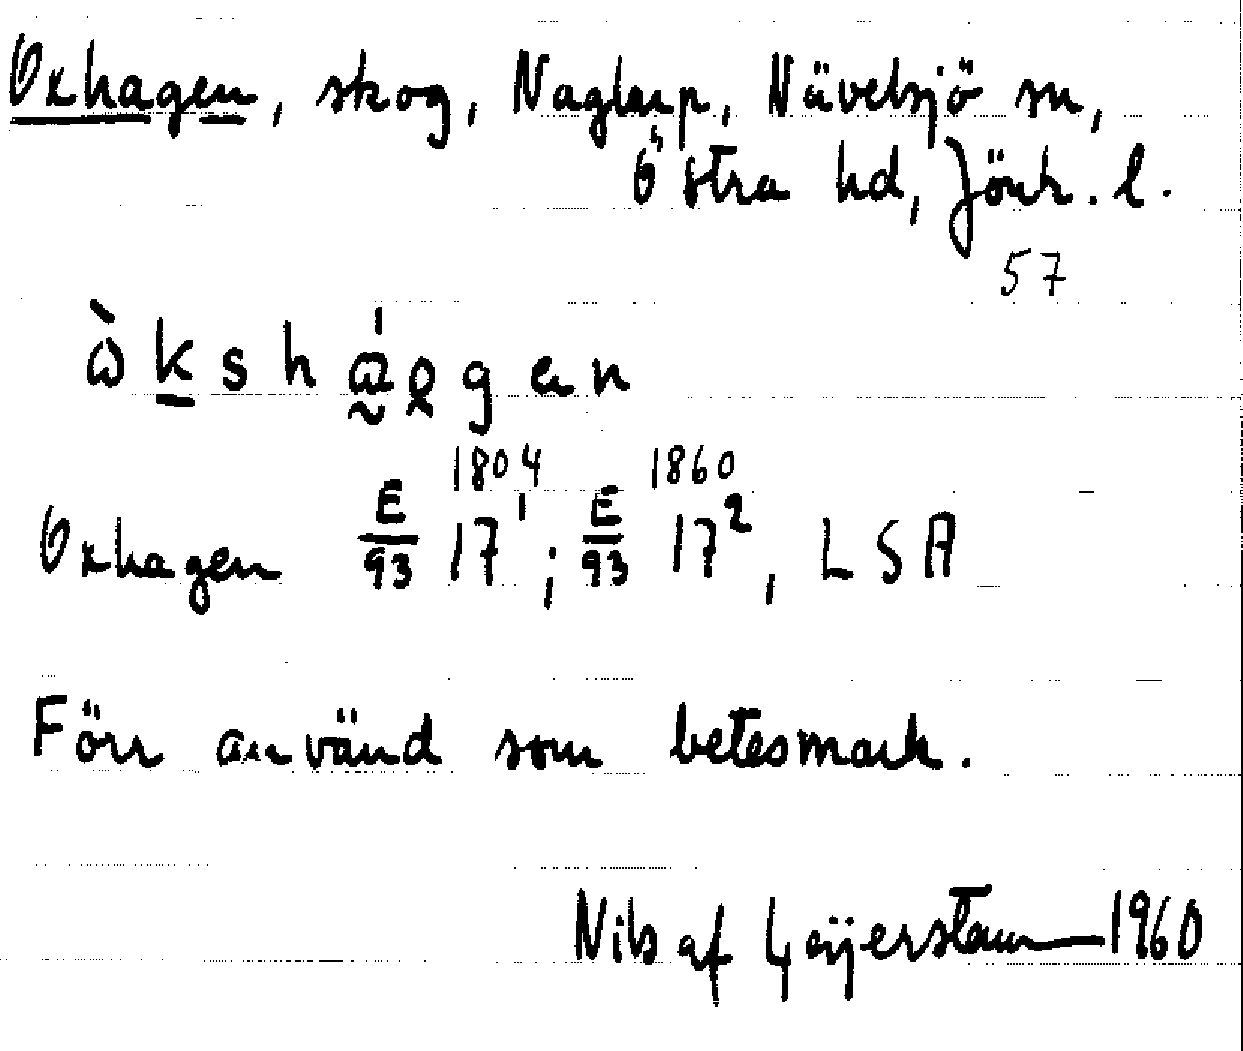 Oxhagen, skog, Naglarp, Nävelsjö sn,
Östra hd, Jönk. l.
57
Oxhagen E/93 17¹ 1804; E/93 17² 1860, LSA
Förr använd som betesmark.
Nils af Geijerstam 1960